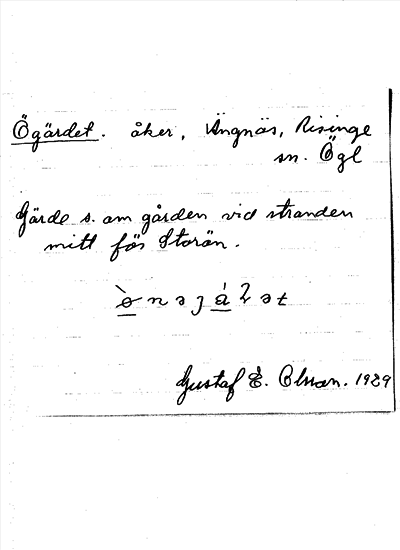 Ögärdet. åker, Ängnäs, Risinge
sn. Ögl
Gärde s. om gården vid stranden
mitt för Storön.
Gustaf E. Olsson. 1929